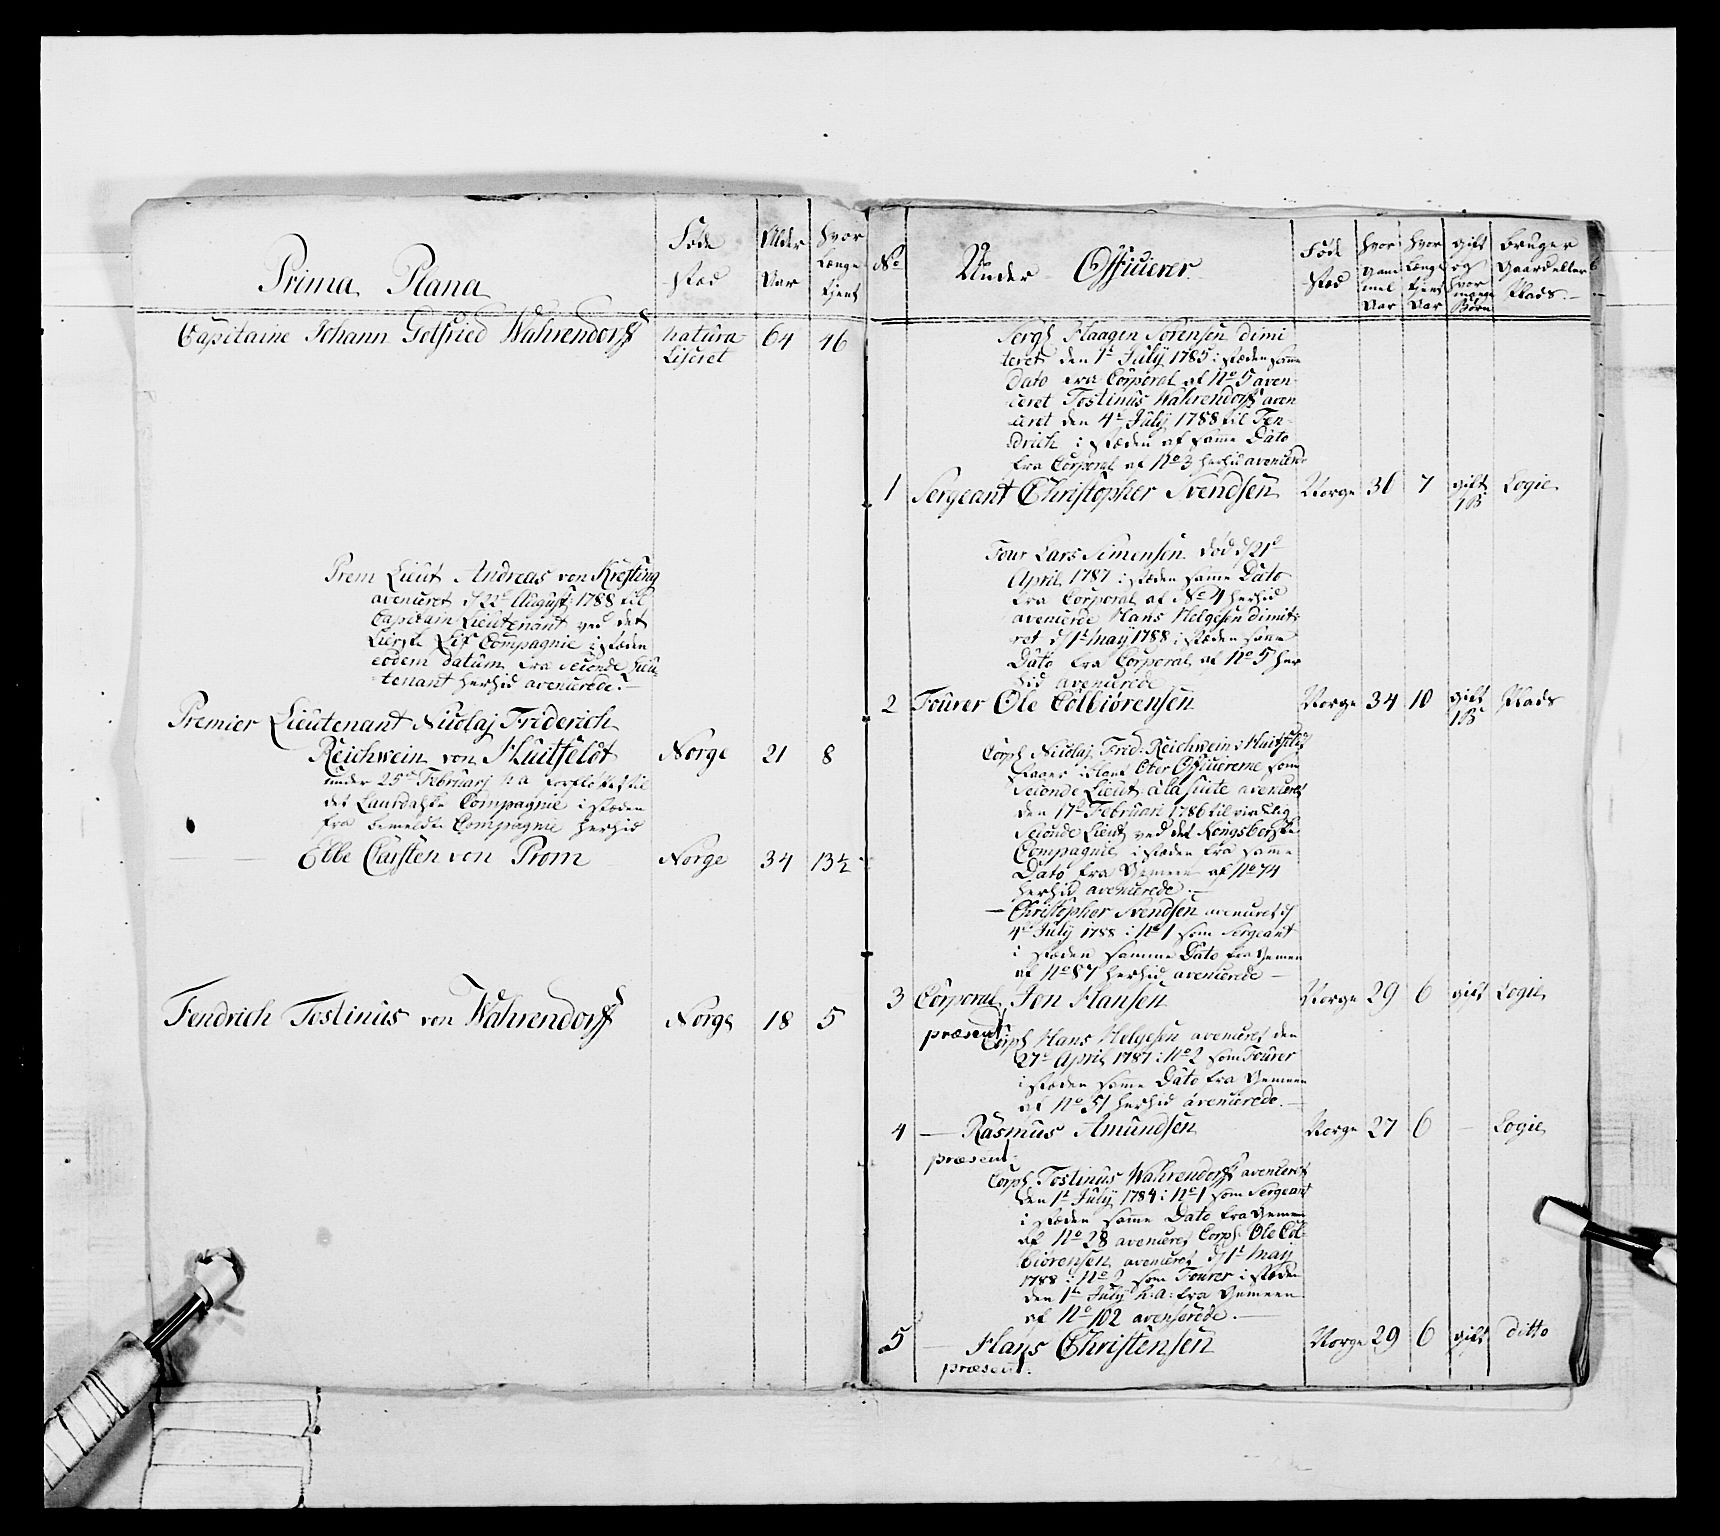 Prima Plana
Føde Stæd
Alder Aar
hvor Længe tjent
Capitaine Johann Gotfried Wahrendorff natura Liseret 64 46
Prem Lieut Andreas von Kresting
avenceret d 22de August: 1788 til
Capitain Lieutenant ved det
Liersk Lif Compagnie i steden
eodem datum fra Seconde Lieu-
tenant herhid avencerede.-
Premier Lieutenant Nicolaj Friderich
Reichwein von Huitfeldt Norge 21 8
under 25de Februarj h a forflöttet til
det Laurdahlske Compagnie i steden
fra bemeldte Compagnie herhid
Ebbe Carsten von Prom Norge 34 13½
Fendrich Tostinus von Wahrendorff Norge 18 5
No
Under Officierer
Føde Stæd
hvor Gam mel Aar
hvor Længe tjent Aar
gift og hvor mange Börn
bruger Gaard eller Plads.-
Sergt Haagen Sörensen dimi
teret den 1te July 1785 i steden samme
Dato fra Corporal af No 5 aven-
ceret Tostinus Wahrendorff aven
ceret den 4de July 1788 til Fen-
drich i steden af samme Dato
fra Corporal af No 3 herhid avencerede
1 Sergeant Christopher Svendsen Norge 31 7 gift 1 B Logie
Four Lars Simensen död d 21de
April 1787 i steden samme Dato
fra Corporal af No 4 herhid
avencerde Hans Helgesen dimitt
ret d 1te May 1788 i steden samme
Dato fra Corporal af No 5 her
hid avencerede
2 Fourer Ole Colbiörensen Norge 34 10 gift 1 B Plads
Corpl Nicolaj Fred: Reichwein v Huitfeldt
staaer iblant Ober Officererne som
Seconde Lieut: a la suite avenceret
den 17de Februari 1786 til virkelig
Seconde Lieut ved det Kongsbergske
Compagnie i steden fra samme
Dato fra Gemeen af No 74
herhid avencerede.-
- Christopher Svendsen avenceret d
4de July 1788 i No 1 som Sergeant
i steden samme Dato fra Gemen
af No 87 herhid avencerede -
3 Corporal Jon Hansen Norge 29 6 gift Logie
præsent
Corpl Hans Helgesen avenceret den
27de April 1787 i No 2 som Fourer
i steden samme Dato fra Gemeen
af No 51 herhid avencerede.-
4 - Rasmus Amundsen Norge 27 6 - Logie
præsent
Corpl Tostinus Wahrendorff avenceret
den 1te July 1784 i No 1 som Sergeant
i steden samme Dato fra Gemen
af No 28 avenceret Corpl Ole Col-
biörensen avenceret d 1te May
1788 i No 2 som Fourer i steden
den 1te July h: a: fra Gemeen
af No 102 avencerede.-
5 - Hans Christensen Norge 29 6 gift ditto
præsent.